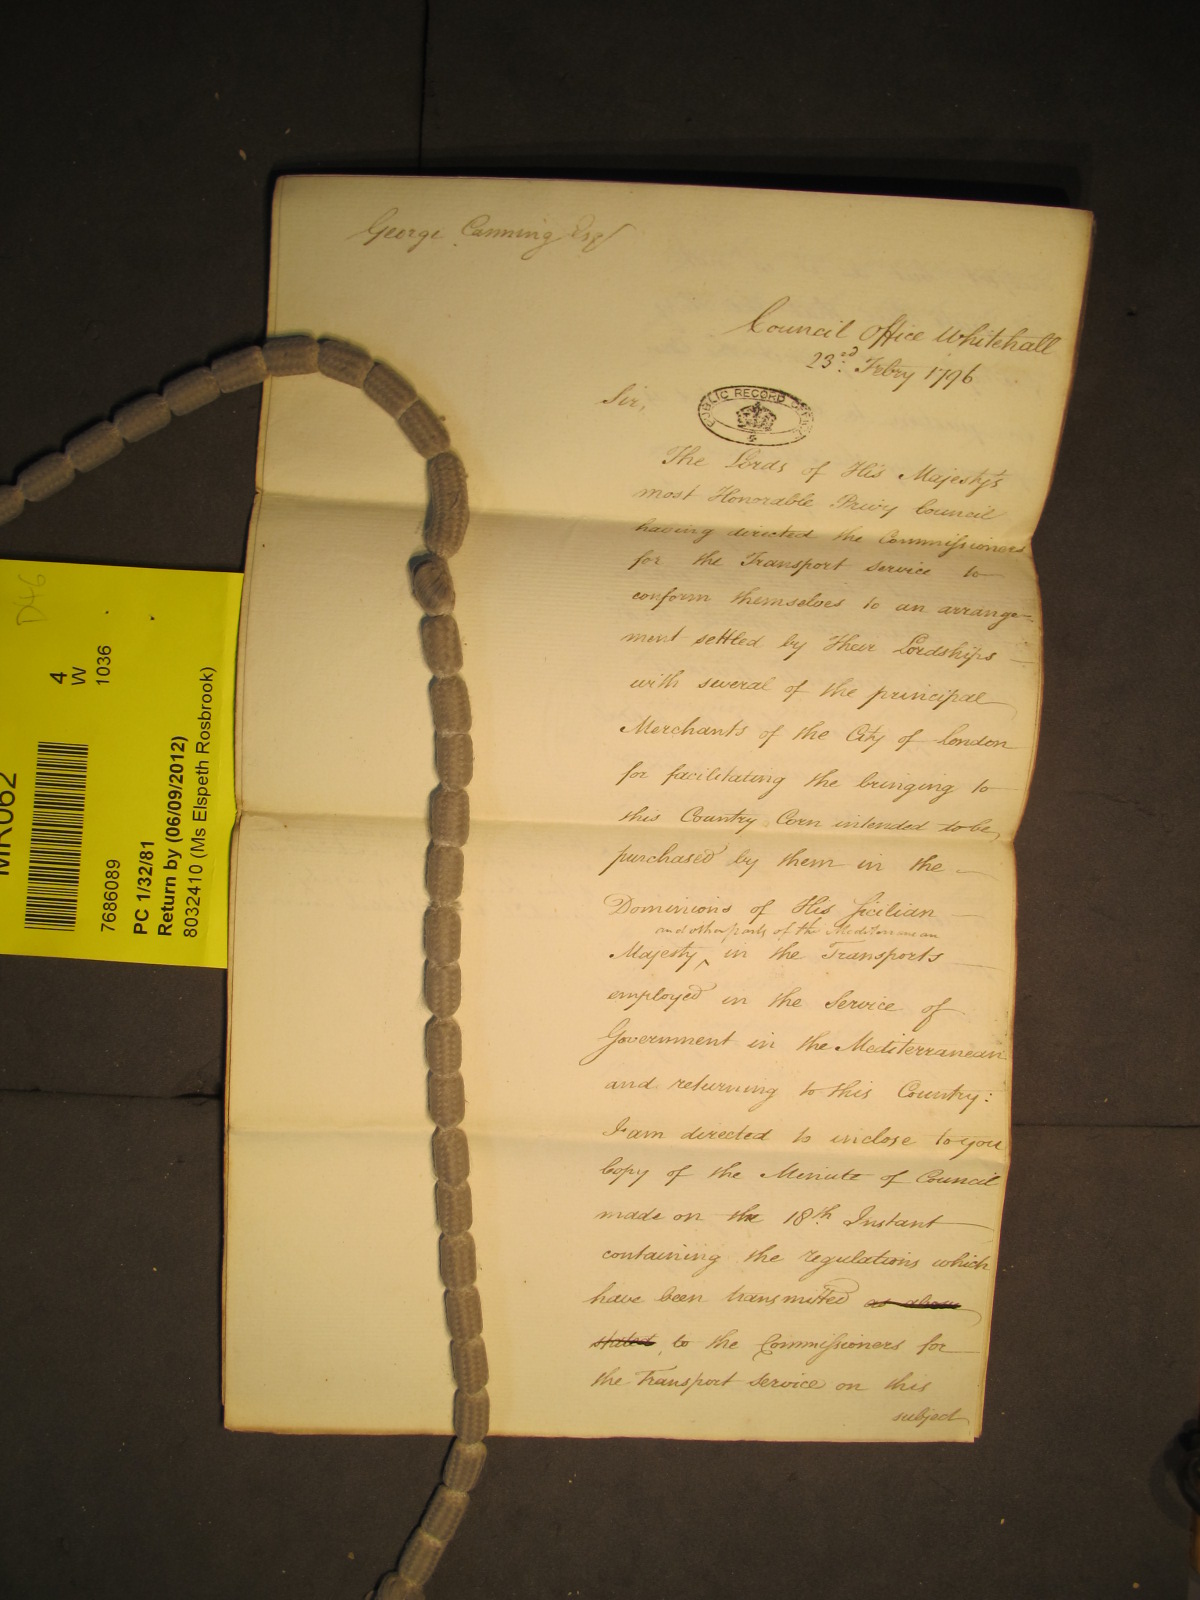 George Canning Esqr
Council Office Whitehall
23rd. Febry 1796
Sir,
PUBLIC RECORD OFFICE
The Lords of His Majesty's
most Honorable Privy Council
having directed the Commissioners
for the Transport service to
conform themselves to an arrange-
ment settled by Their Lordships
with several of the principal
Merchants of the City of London
for facilitating the bringing to
this Country Corn intended to be
purchased by them in the
Dominions of His Sicilian
and other parts of the Mediterranean
Majesty ^ in the Transports
employed in the Service of
Government in the Mediterranean
and returning to this Country:
I am directed to inclose to you
Copy of the Minute of Council
made on the 18th. Instant
containing the regulations which
have been transmitted as above
stated, to the Commissioners for
the Transport Service on this
subject
D46
4
W
1036
MR062
7686089
PC 1/32/81
Return by (06/09/2012)
8032410 (Ms Elspeth Rosbrook)